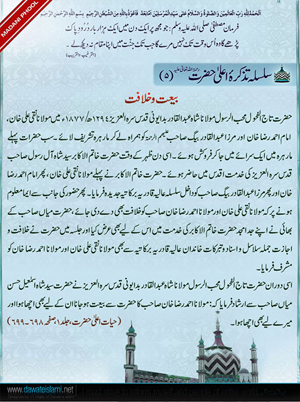 MADANI PHOOL
اَلْحَمْدُ لِلّٰهِ رَبِّ الْعٰلَمِيْنَ وَالصَّلٰوةُ وَالسَّلَامُ عَلٰى سَيِّدِ الْمُرْسَلِيْنَ اَمَّا بَعْدُ فَاَعُوْذُ بِاللّٰهِ مِنَ الشَّيْطٰنِ الرَّجِيْمِ بِسْمِ اللّٰهِ الرَّحْمٰنِ الرَّحِيْمِ
فرمان مصطفٰی صلی اللہ علیہ وسلم: جو مجھ پر ایک دن میں ایک ہزار بار درود پاک
پڑھے گا وہ اُس وقت تک نہیں مرے گا جب تک جنت میں اپنا مقام نہ دیکھ لے۔
سلسلہ تذکرۂ اعلیٰ حضرت (۵)
بیعت و خلافت
حضرت تاج الفحول محب الرسول مولانا شاہ عبدالقادر بدایونی قدس سرہ العزیز ۱۲۹۴ھ/۱۸۷۷ء میں مولانا نقی علی خان،
امام احمد رضا خان اور مرزا عبدالقادر بیگ صاحب کو ہمراہ لے کر مارہرہ تشریف لائے۔ سب حضرات پہلے
مارہرہ میں ایک سرائے میں جا کر فروکش ہوئے۔ اسی دن ظہر کے وقت حضرت خاتم الاکابر سید شاہ آل رسول صاحب
قدس سرہ العزیز کی خدمت اقدس میں حاضر ہوئے۔ حضرت خاتم الاکابر نے پہلے مولانا نقی علی خان، پھر امام احمد رضا
خان اور پھر مرزا عبدالقادر بیگ صاحب کو داخل سلسلہ عالیہ قادریہ برکاتیہ جدیدہ فرمایا۔ پھر حضور کی جانب سے ایما معلوم
ہونے پر کہ مولانا نقی علی خان اور مولانا احمد رضا خان صاحب کو خلافت بھی دے دی جائے، حضرت میاں صاحب کے
بھائی نے اپنے جد امجد حضرت خاتم الاکابر کی خدمت میں اس کے لیے بھی عرض کیا اور جلسہ میں حضرت نے خلافت و
اجازت جملہ سلاسل و اسناد و تبرکات خاندان عالیہ قادریہ برکاتیہ سے بھی مولانا نقی علی خان اور مولانا احمد رضا خان کو
مشرف فرمایا۔
اسی دوران حضرت تاج الفحول محب الرسول مولانا شاہ عبدالقادر بدایونی قدس سرہ العزیز نے حضرت سید شاہ اسمٰعیل حسن
میاں صاحب سے ارشاد فرمایا کہ: مولانا احمد رضا خان صاحب کا حضرت سے بیعت ہو جانا ان کے لیے بھی اچھا ہوا اور
میرے لیے بھی اچھا ہوا۔ (حیات اعلیٰ حضرت، جلد ۱، صفحہ ۶۹۸-۶۹۹)
www.dawateislami.net